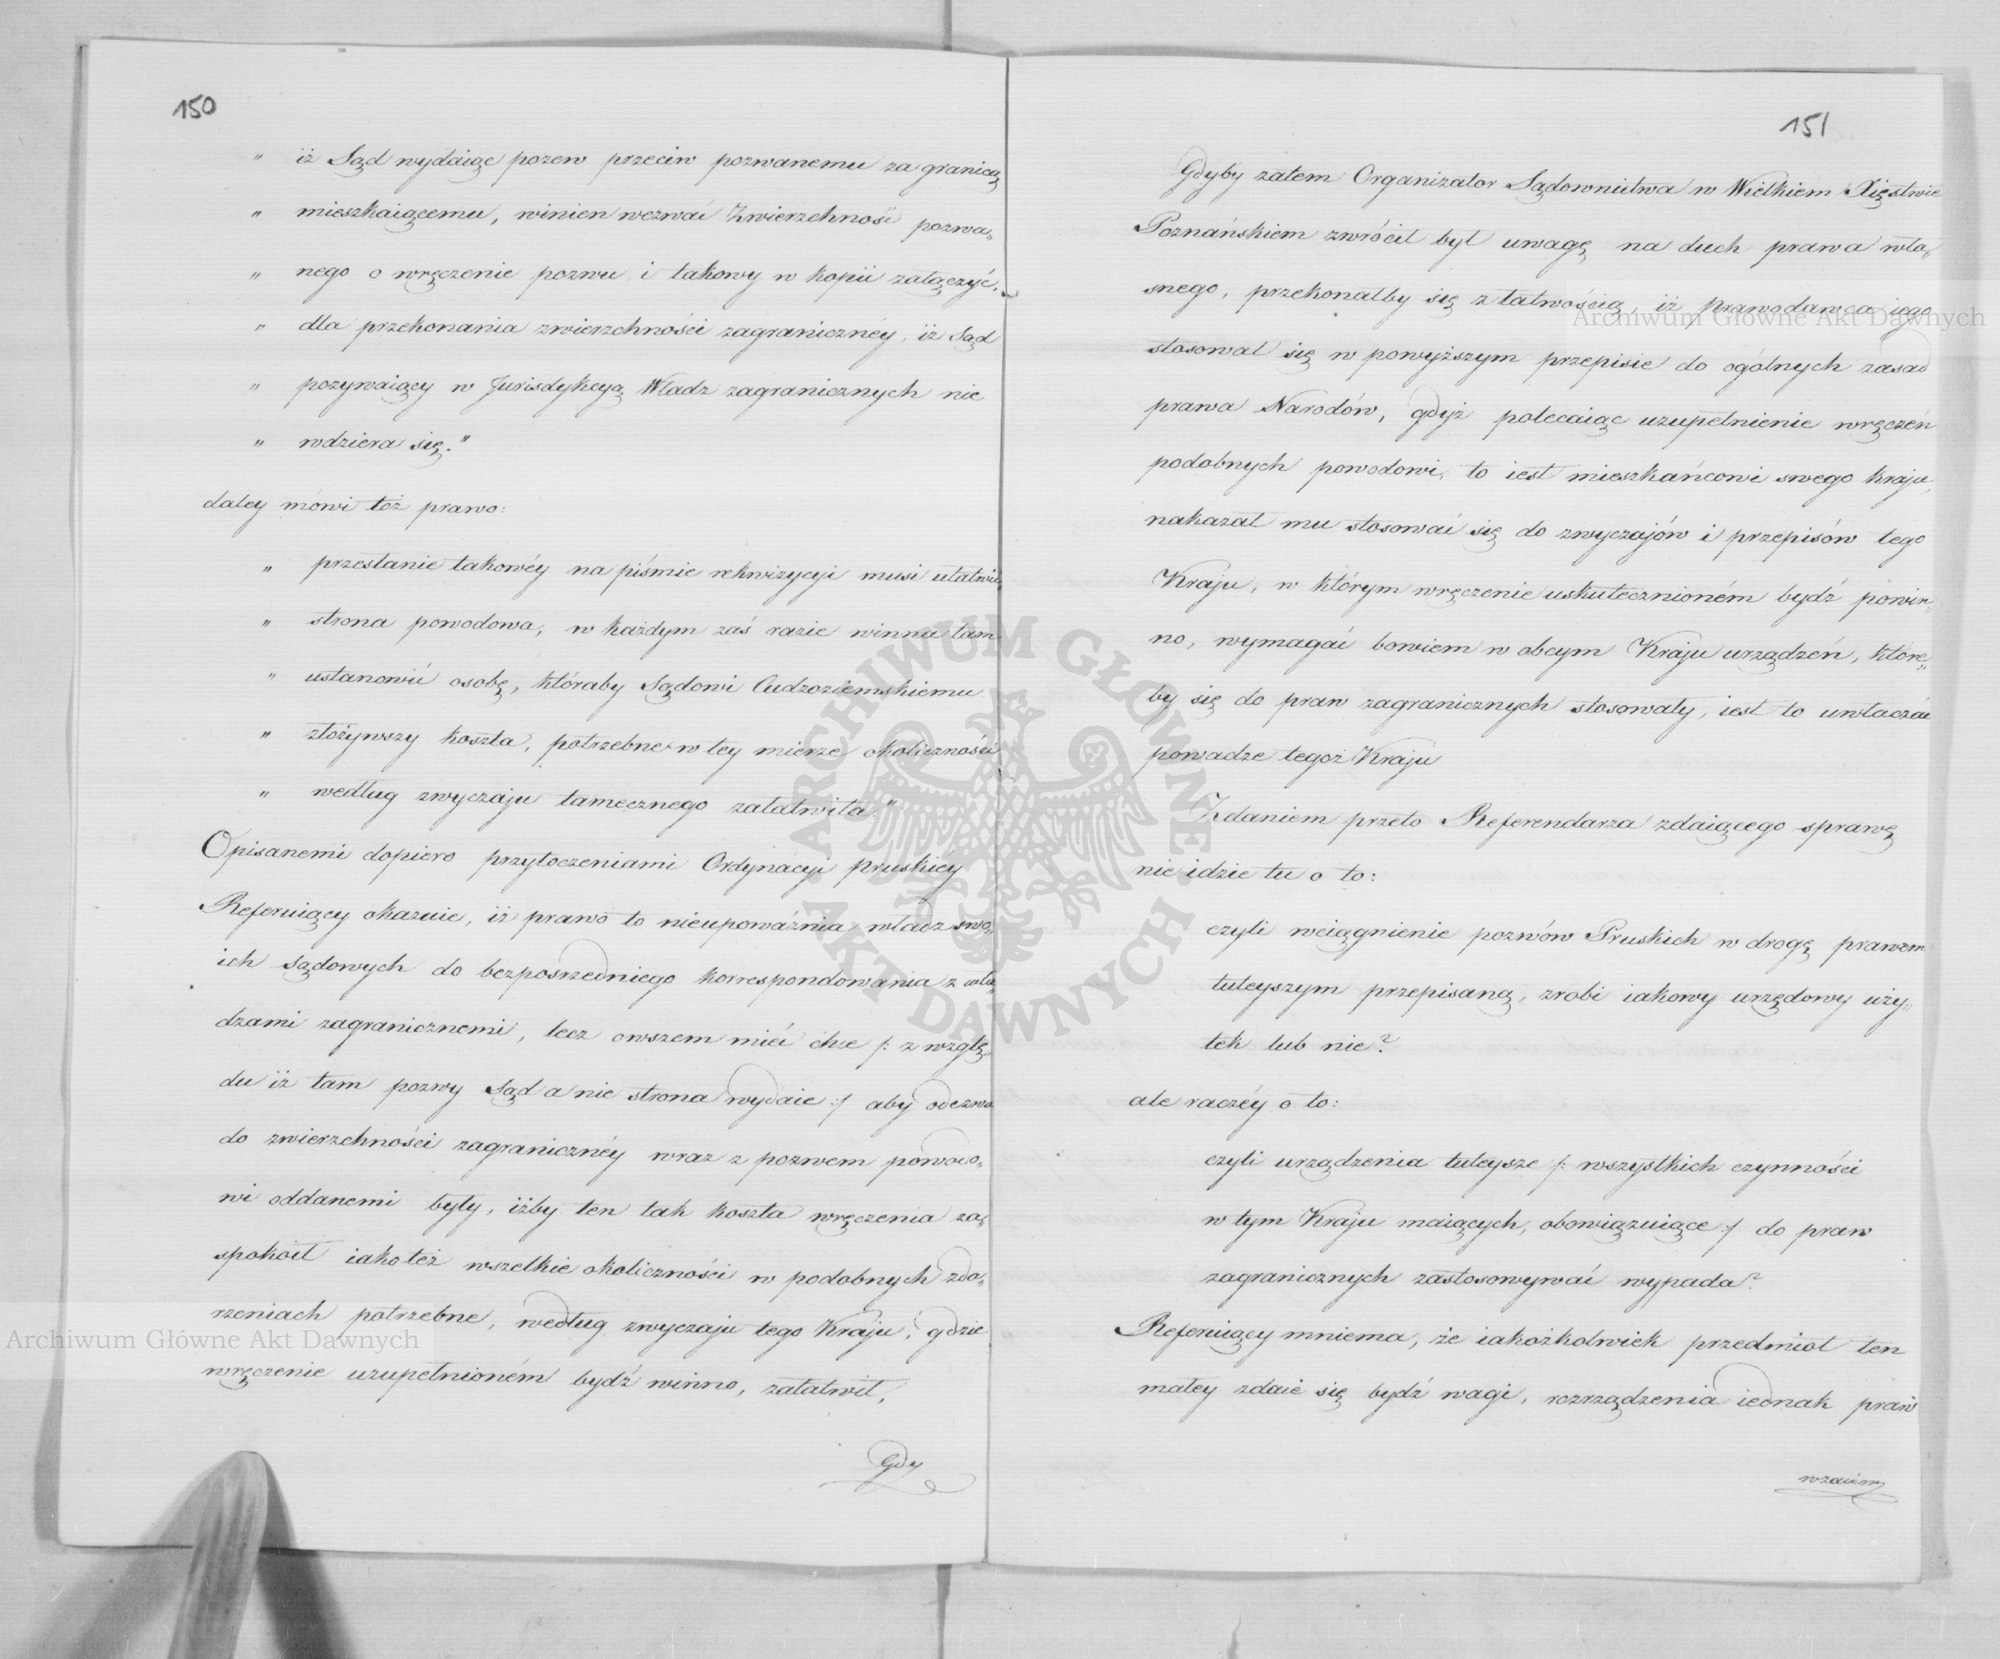 150
„ iż Sąd wydaiąc pozew przeciw pozwanemu za granicą
„ mieszkaiącemu, winien wezwać Zwierzchność pozwa„
„ nego o wręczenie pozwu i takowy w kopii załączyć,
„ dla przekonania zwierzchności zagranicznéy, iż Sąd
„ pozywaiący w Jurisdykcyą Władz zagranicznych nie
„ wdziera się."
daley mówi toż prawo:
„ przesłanie takowéy na piśmie rekwizycyi musi ułatwić
„ strona powodowa, w każdym zaś razie winna tam
„ ustanowić osobę, któraby Sądowi Cudzoziemskiemu
„ złożywszy koszta, potrzebne w tey mierze okoliczności
„ według zwyczaju tamecznego załatwiła."
Opisanemi dopiero przytoczeniami Ordynacyi pruskiéy
Referuiący okazuie, iż prawo to nieupoważnia władz swo„
ich sądowych do bezpośredniego korrespondowania z wła„
dzami zagranicznemi, lecz owszem mieć chce /: z wzglę„
du iż tam pozwy Sąd a nie strona wydaie :/ aby odezwa
do zwierzchności zagranicznéy wraz z pozwem powodo„
wi oddanemi były, iżby ten tak koszta wręczenia za„
spokoił iako też wszelkie okoliczności w podobnych zda„
rzeniach potrzebne, według zwyczaju tego Kraju, gdzie
wręczenie uzupełnioném bydź winno, załatwił,
Gdy
151
Gdyby zatem Organizator Sądownictwa w Wielkiem Xięstwie
Poznańskiem zwrócił był uwagę na duch prawa wła„
snego, przekonałby się z łatwością, iż prawodawca iego
stosował się w powyższym przepisie do ogólnych zasad
prawa Narodów, gdyż polecaiąc uzupełnienie wręczeń
podobnych powodowi, to iest mieszkańcowi swego kraju,
nakazał mu stosować się do zwyczajów i przepisów tego
Kraju, w którym wręczenie uskutecznioném bydź powin„
no, wymagać bowiem w obcym Kraju urządzeń, które„
by się do praw zagranicznych stosowały, iest to uwłaczać
powadze tegoż Kraju
Zdaniem przeto Referendarza zdaiącego sprawę
nie idzie tu o to:
czyli wciągnienie pozwów Pruskich w drogę prawem
tuteyszym przepisaną, zrobi iakowy urzędowy uży„
tek lub nie?
ale raczéy o to:
czyli urządzenia tuteysze /: wszystkich czynności
w tym Kraju maiących, obowiązuiące :/ do praw
zagranicznych zastosowywać wypada?
Referuiący mniema, że iakożkolwiek przedmiot ten
małey zdaie się bydź wagi, rozrządzenia iednak praw
wzaiem
Archiwum Główne Akt Dawnych
Archiwum Główne Akt Dawnych
ARCHIWUM GŁÓWNE AKT DAWNYCH